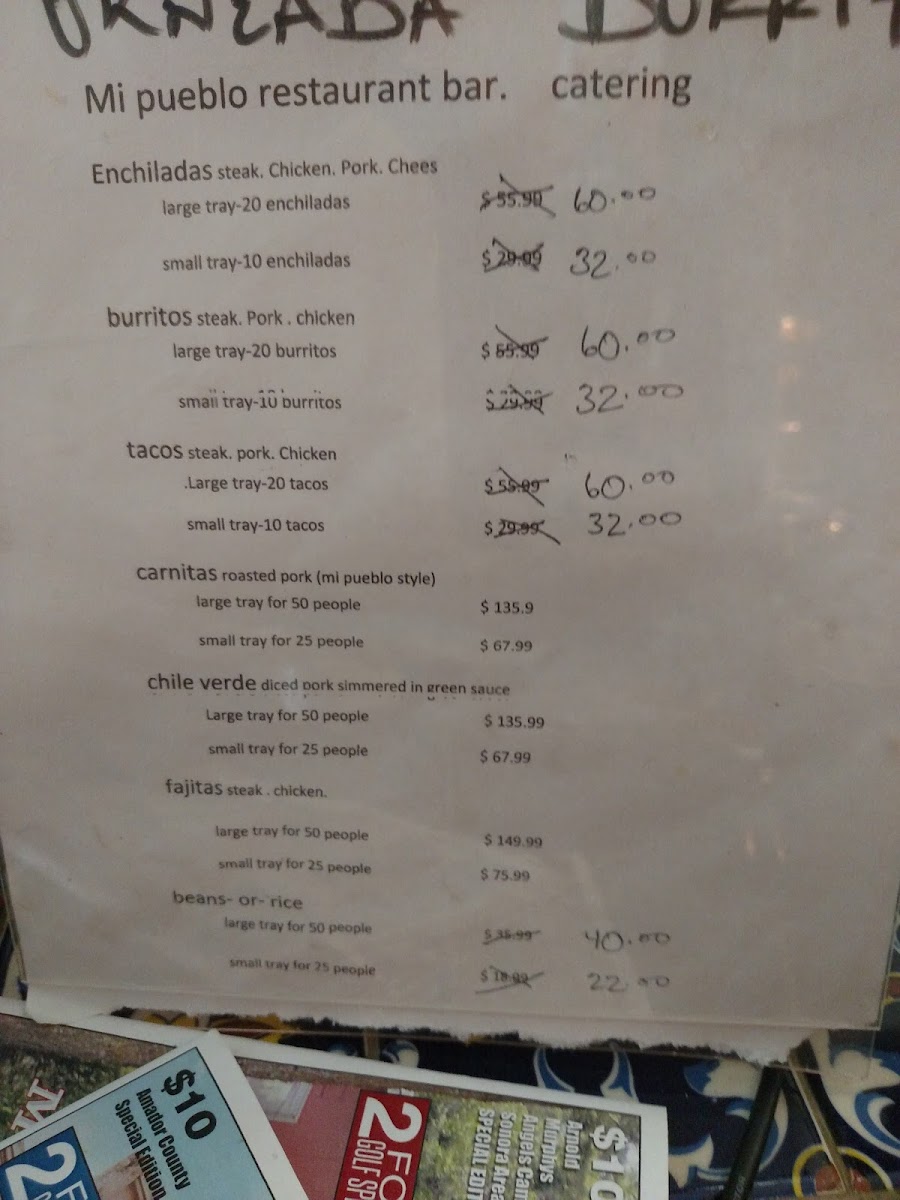 Mi pueblo restaurant bar. catering
Enchiladas steak. Chicken. Pork. Chees
large tray-20 enchiladas $ 55.90 60.00
small tray-10 enchiladas $ 29.99 32.00
burritos steak. Pork . chicken
large tray-20 burritos $ 55.99 60.00
small tray-10 burritos $ 29.99 32.00
tacos steak. pork. Chicken
.Large tray-20 tacos $ 55.99 60.00
small tray-10 tacos $ 29.99 32.00
carnitas roasted pork (mi pueblo style)
large tray for 50 people $ 135.9
small tray for 25 people $ 67.99
chile verde diced pork simmered in green sauce
Large tray for 50 people $ 135.99
small tray for 25 people $ 67.99
fajitas steak . chicken.
large tray for 50 people $ 149.99
small tray for 25 people $ 75.99
beans- or- rice
large tray for 50 people $ 35.99 40.00
small tray for 25 people $ 18.99 22.00
$10
Amador County
Special Edition
2 FO
GOLF SP
$10
Arnold
Murphys
Angels Cam
Sonora Area
SPECIAL EDIT
M
2 F